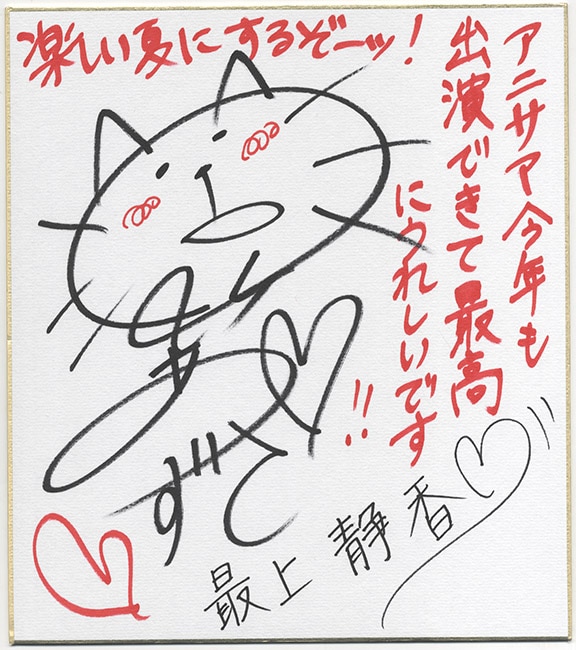 楽しい夏にするぞーッ!
アニサマ今年も
出演できて最高
にうれしいです
!!
最上静香